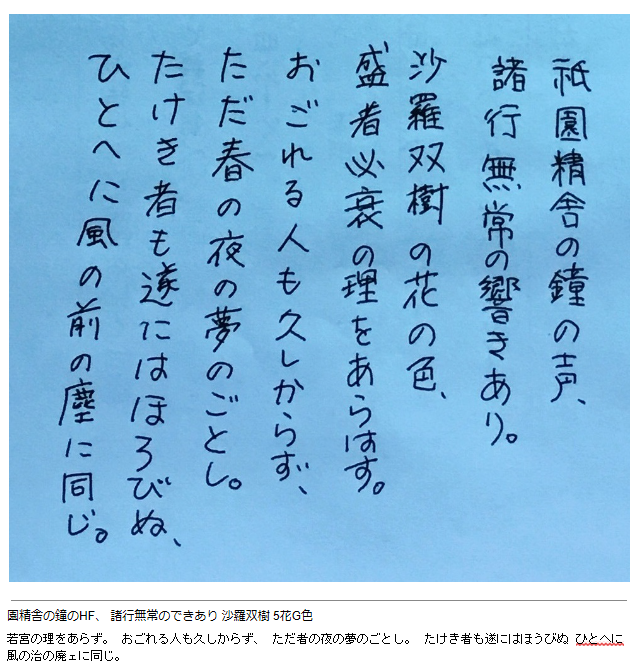 祇園精舎の鐘の声、
諸行無常の響きあり。
沙羅双樹の花の色、
盛者必衰の理をあらはす。
おごれる人も久しからず、
ただ春の夜の夢のごとし。
たけき者も遂にはほろびぬ、
ひとへに風の前の塵に同じ。
園精舎の鐘のHF、 諸行無常のできあり 沙羅双樹 5花G色
若宮の理をあらず。 おごれる人も久しからず、 ただ者の夜の夢のごとし。 たけき者も遂にはほうびぬ ひとへに
風の治の廃ェに同じ。